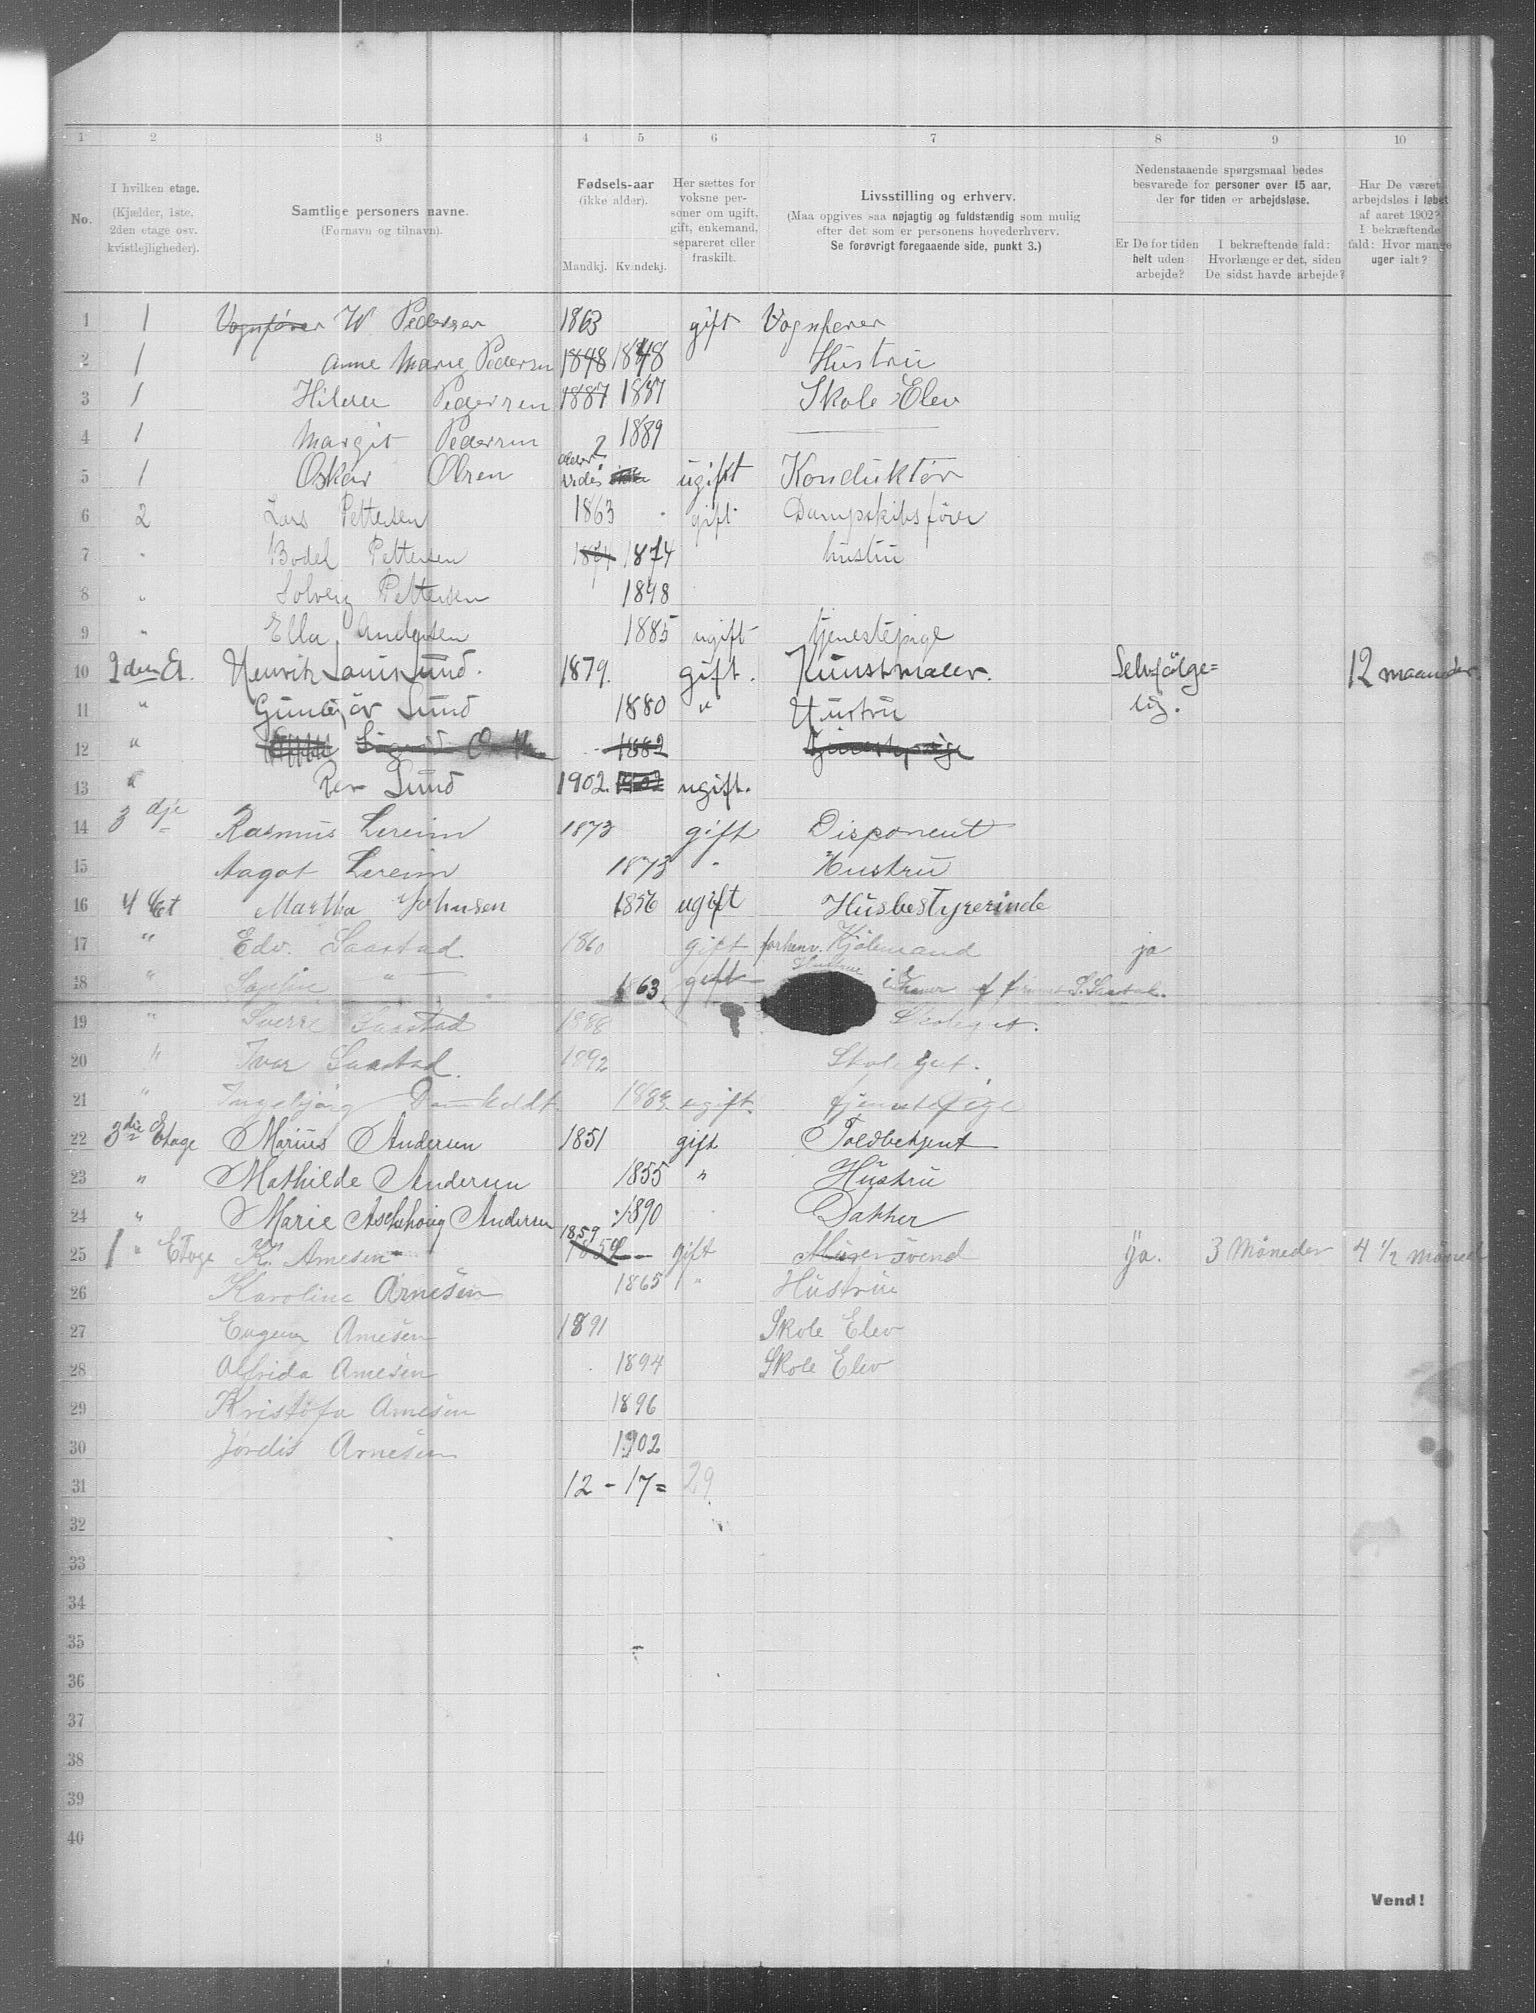 1 2 3 4 5 6 7 8 9 10
No.
I hvilken etage.
(Kjælder, 1ste, 2den etage osv. kvistlejligheder).
Samtlige personers navne.
(Fornavn og tilnavn).
Fødsels-aar
(ikke alder).
Mandkj. Kvindekj.
Her sættes for voksne personer om ugift, gift, enkemand, separeret eller fraskilt.
Livsstilling og erhverv.
(Maa opgives saa nøjagtig og fuldstændig som mulig efter det som er personens hovederhverv.
Se forøvrigt foregaaende side, punkt 3.)
Nedenstaaende spørgsmaal bedes besvarede for personer over 15 aar, der for tiden er arbejdsløse.
Er De for tiden helt uden arbejde?
I bekræftende fald: Hvorlænge er det, siden De sidst havde arbejde?
Har De været arbejdsløs i løbet af aaret 1902? I bekræftende fald: Hvor mange uger ialt?
1 1 Vognfører W Pedersen 1863 gift Vognfører
2 1 Anne Marie Pedersen 1848 1848 Hustru
3 1 Pedersen 1887 1887 Skole Elev
4 1 Margit Pedersen 1889
5 1 Oskar Olsen ugift Konduktør
6 2 Lars Pettersen 1863 gift Dampskibsfører
7 " Bodel Pettersen 1874 hustru
8 " Solveig Pettersen 1898
9 " Ella Andersen 1885 ugift tjenestepige
10 2den Et. Henrik Louis Lund. 1879. gift. Kunstmaler. Selvfølge= 12 maaneder.
11 " Gunbjør Lund 1880 " Hustru lig.
12 " Sigrid 1882 Tjenestepige
13 " Lund 1902. 1902 ugift.
14 3dje Rasmus Lereim 1873 gift Disponent
15 Aagot Lereim 1873 " Hustru
16 4 Et Martha Johnsen 1856 ugift Husbestyrerinde
17 " Edv. Saastad 1860 gift forhenv. Kjølmand ja
18 " " 1863 gift Hustru
19 " Sverre Saastad 1888
20 " Ivar Saastad. 1892
21 " Ingebjørg ugift. tjenestepige
22 3die Etage Marius Andersen 1851 gift Toldbetjent
23 " Mathilde Andersen 1855 " Hustru
24 " Marie Aschehoug Andersen 1890 Datter
25 1 " Etage K. Arnesen 1859 gift Murersvend Ja. 3 Måneder 4 1/2 måned
26 Karoline Arnesen 1865 " Hustrue
27 Eugen Arnesen 1891 Skole Elev
28 Alfrida Arnesen 1894 Skole Elev
29 Kristofa Arnesen 1896
30 Jørdis Arnesen 1902
31 12 - 17 = 29
32
33
34
35
36
37
38
39
40
Vend!